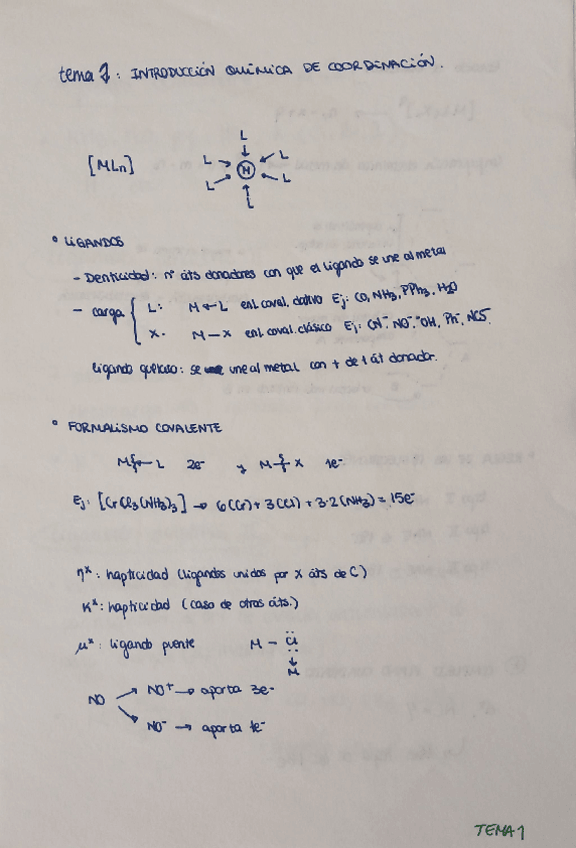 tema 1: INTRODUCCIÓN QUÍMICA DE COORDINACIÓN.
[MLn]
L
L L
M
L L
L
° LIGANDOS
- Denticidad: nº áts donadores con que el ligando se une al metal
- carga { L: M ← L enl. coval. dativo Ej: CO, NH₃, PPh₃, H₂O
X. M — X enl. coval. clásico Ej: CN⁻, NO⁻, ⁻OH, Ph⁻, NCS⁻
ligando quelato: se une al metal con + de 1 át donador.
° FORMALISMO COVALENTE
M ⦚← L 2e⁻ y M ⦚ X 1e⁻
Ej: [CrCl₃(NH₃)₃] → 6(Cr) + 3(Cl) + 3·2(NH₃) = 15e⁻
ηˣ: hapticidad (ligandos unidos por x áts de C)
κˣ: hapticidad (caso de otros áts.)
μˣ: ligando puente M – Cl
↓
M
NO → NO⁺ → aporta 3e⁻
→ NO⁻ → aporta 1e⁻
TEMA 1